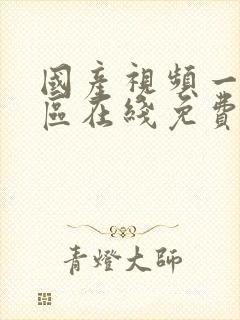 國產視頻一
區在綫免費
青燈大師